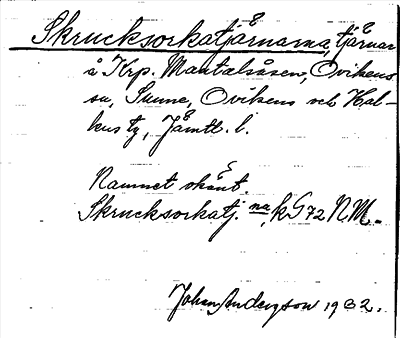 Skrucksorkatjärnarna, tjärnar
å Krp. Mantalsåsen, Ovikens
sn, Sunne, Ovikens och Hal-
lens tg, Jämtl. l.
Namnet okänt.
Skrucksorkatj. na, k G 72 N.M.
Johan Andersson 1932.